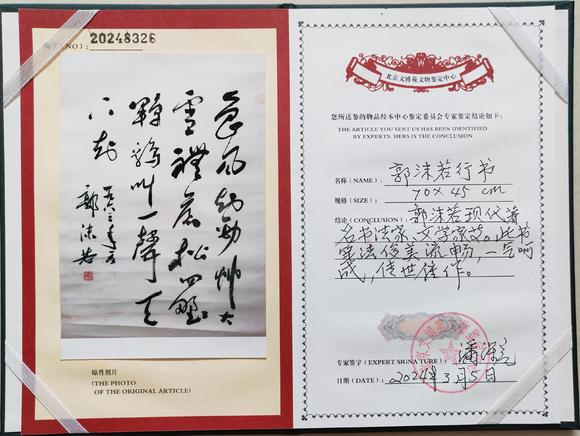 (NO): 20248326
雪禮 松
叫一聲天
下
郭沫若
原件照片
(THE PHOTO
OF THE ORIGINAL ARTICLE)
北京文博苑文物鉴定中心
您所送鉴的物品经本中心鉴定委员会专家鉴定结论如下:
THE ARTICLE YOU SENT US HAS BEEN IDENTIFIED
BY EXPERTS. HERS IS THE CONCLUSION
名称(NAME): 郭沫若行书
规格(SIZE): 70×45cm
结论(CONCLUSION): 郭沫若现代著
名书法家、文学家 。此书
法俊美流畅,一气呵
成,传世佳作。
专家签字(EXPERT SIGNATURE): 潘
日期(DATE): 2024年3月5日